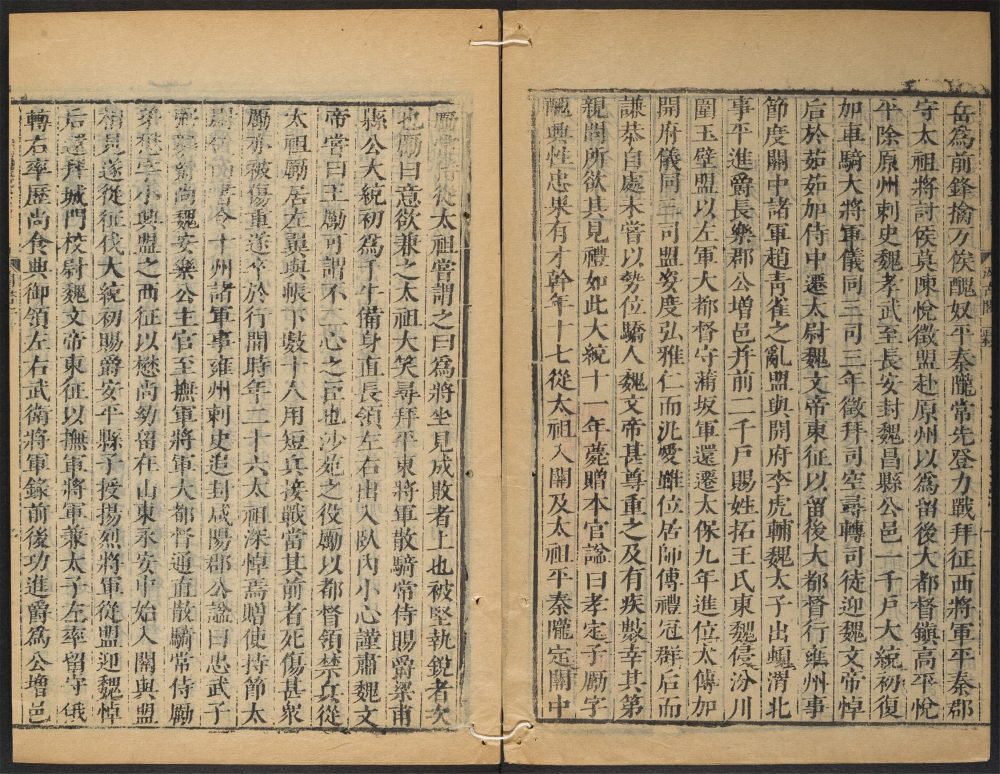 岳爲前鋒擒万俟醜奴平秦隴常先登力戰拜征西將軍平秦郡
守太祖將討侯莫陳悅徵盟赴原州以爲留後大都督鎮高平悅
平除原州刺史魏孝武至長安封魏昌縣公邑一千戶大統初復
加車騎大將軍儀同三司三年徵拜司空尋轉司徒迎魏文帝悼
后於茹茹加侍中遷太尉魏文帝東征以留後大都督行雍州事
節度關中諸軍趙青雀之亂盟與開府李虎輔魏太子出頓渭北
事平進爵長樂郡公增邑并前二千戶賜姓拓王氏東魏侵汾川
圍玉壁盟以左軍大都督守蒲坂軍還遷太保九年進位太傅加
開府儀同三司盟姿度弘雅仁而汎愛雖位居師傅禮冠群后而
謙恭自處未嘗以勢位驕人魏文帝甚尊重之及有疾數幸其第
親問所欲其見禮如此大統十一年薨贈本官諡曰孝定子勵字
醜興性忠果有才幹年十七從太祖入關及太祖平秦隴定關中
勵常侍從太祖嘗謂之曰爲將坐見成敗者上也被堅執銳者次
也勵曰意欲兼之太祖大笑尋拜平東將軍散騎常侍賜爵梁甫
縣公大統初爲千牛備身直長領左右出入臥內小心謹肅魏文
帝嘗曰王勵可謂不二心之臣也沙苑之役勵以都督領禁兵從
太祖勵居左翼與帳下數十人用短兵接戰當其前者死傷甚衆
勵亦被傷重遂卒於行間時年二十六太祖深悼焉贈使持節太
尉領尚書令十州諸軍事雍州刺史追封咸陽郡公諡曰忠武子
弼襲爵尚魏安樂公主官至撫軍將軍大都督通直散騎常侍勵
弟懋字小興盟之西征以懋尚幼留在山東永安中始入關與盟
相見遂從征伐大統初賜爵安平縣子授揚烈將軍從盟迎魏悼
后還拜城門校尉魏文帝東征以撫軍將軍兼太子左率留守俄
轉右率歷尚食典御領左右武衛將軍錄前後功進爵爲公增邑